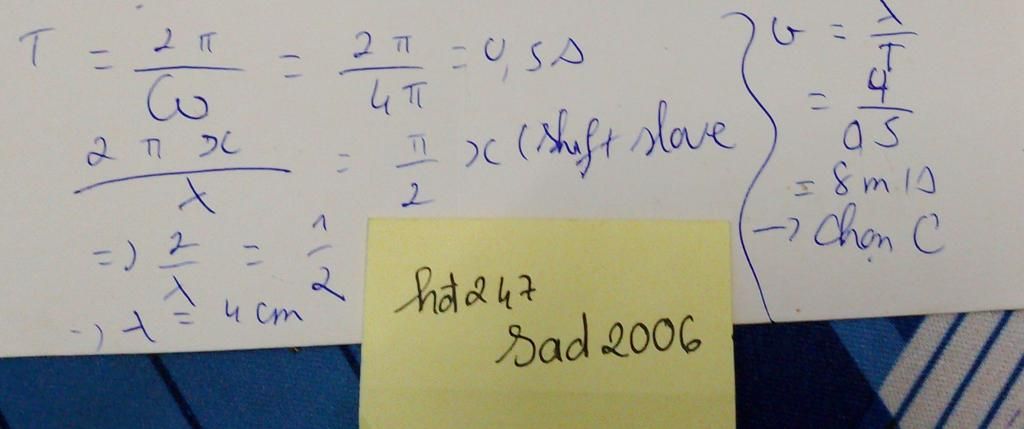 T = 2π/ω = 2π/4π = 0,5s
2πx/λ = π/2 x (shift slove
=) 2/λ = 1/2
=) λ = 4 cm
v = λ/T
= 4/0,5
= 8 m/s
→ Chọn C
hd247
sad2006